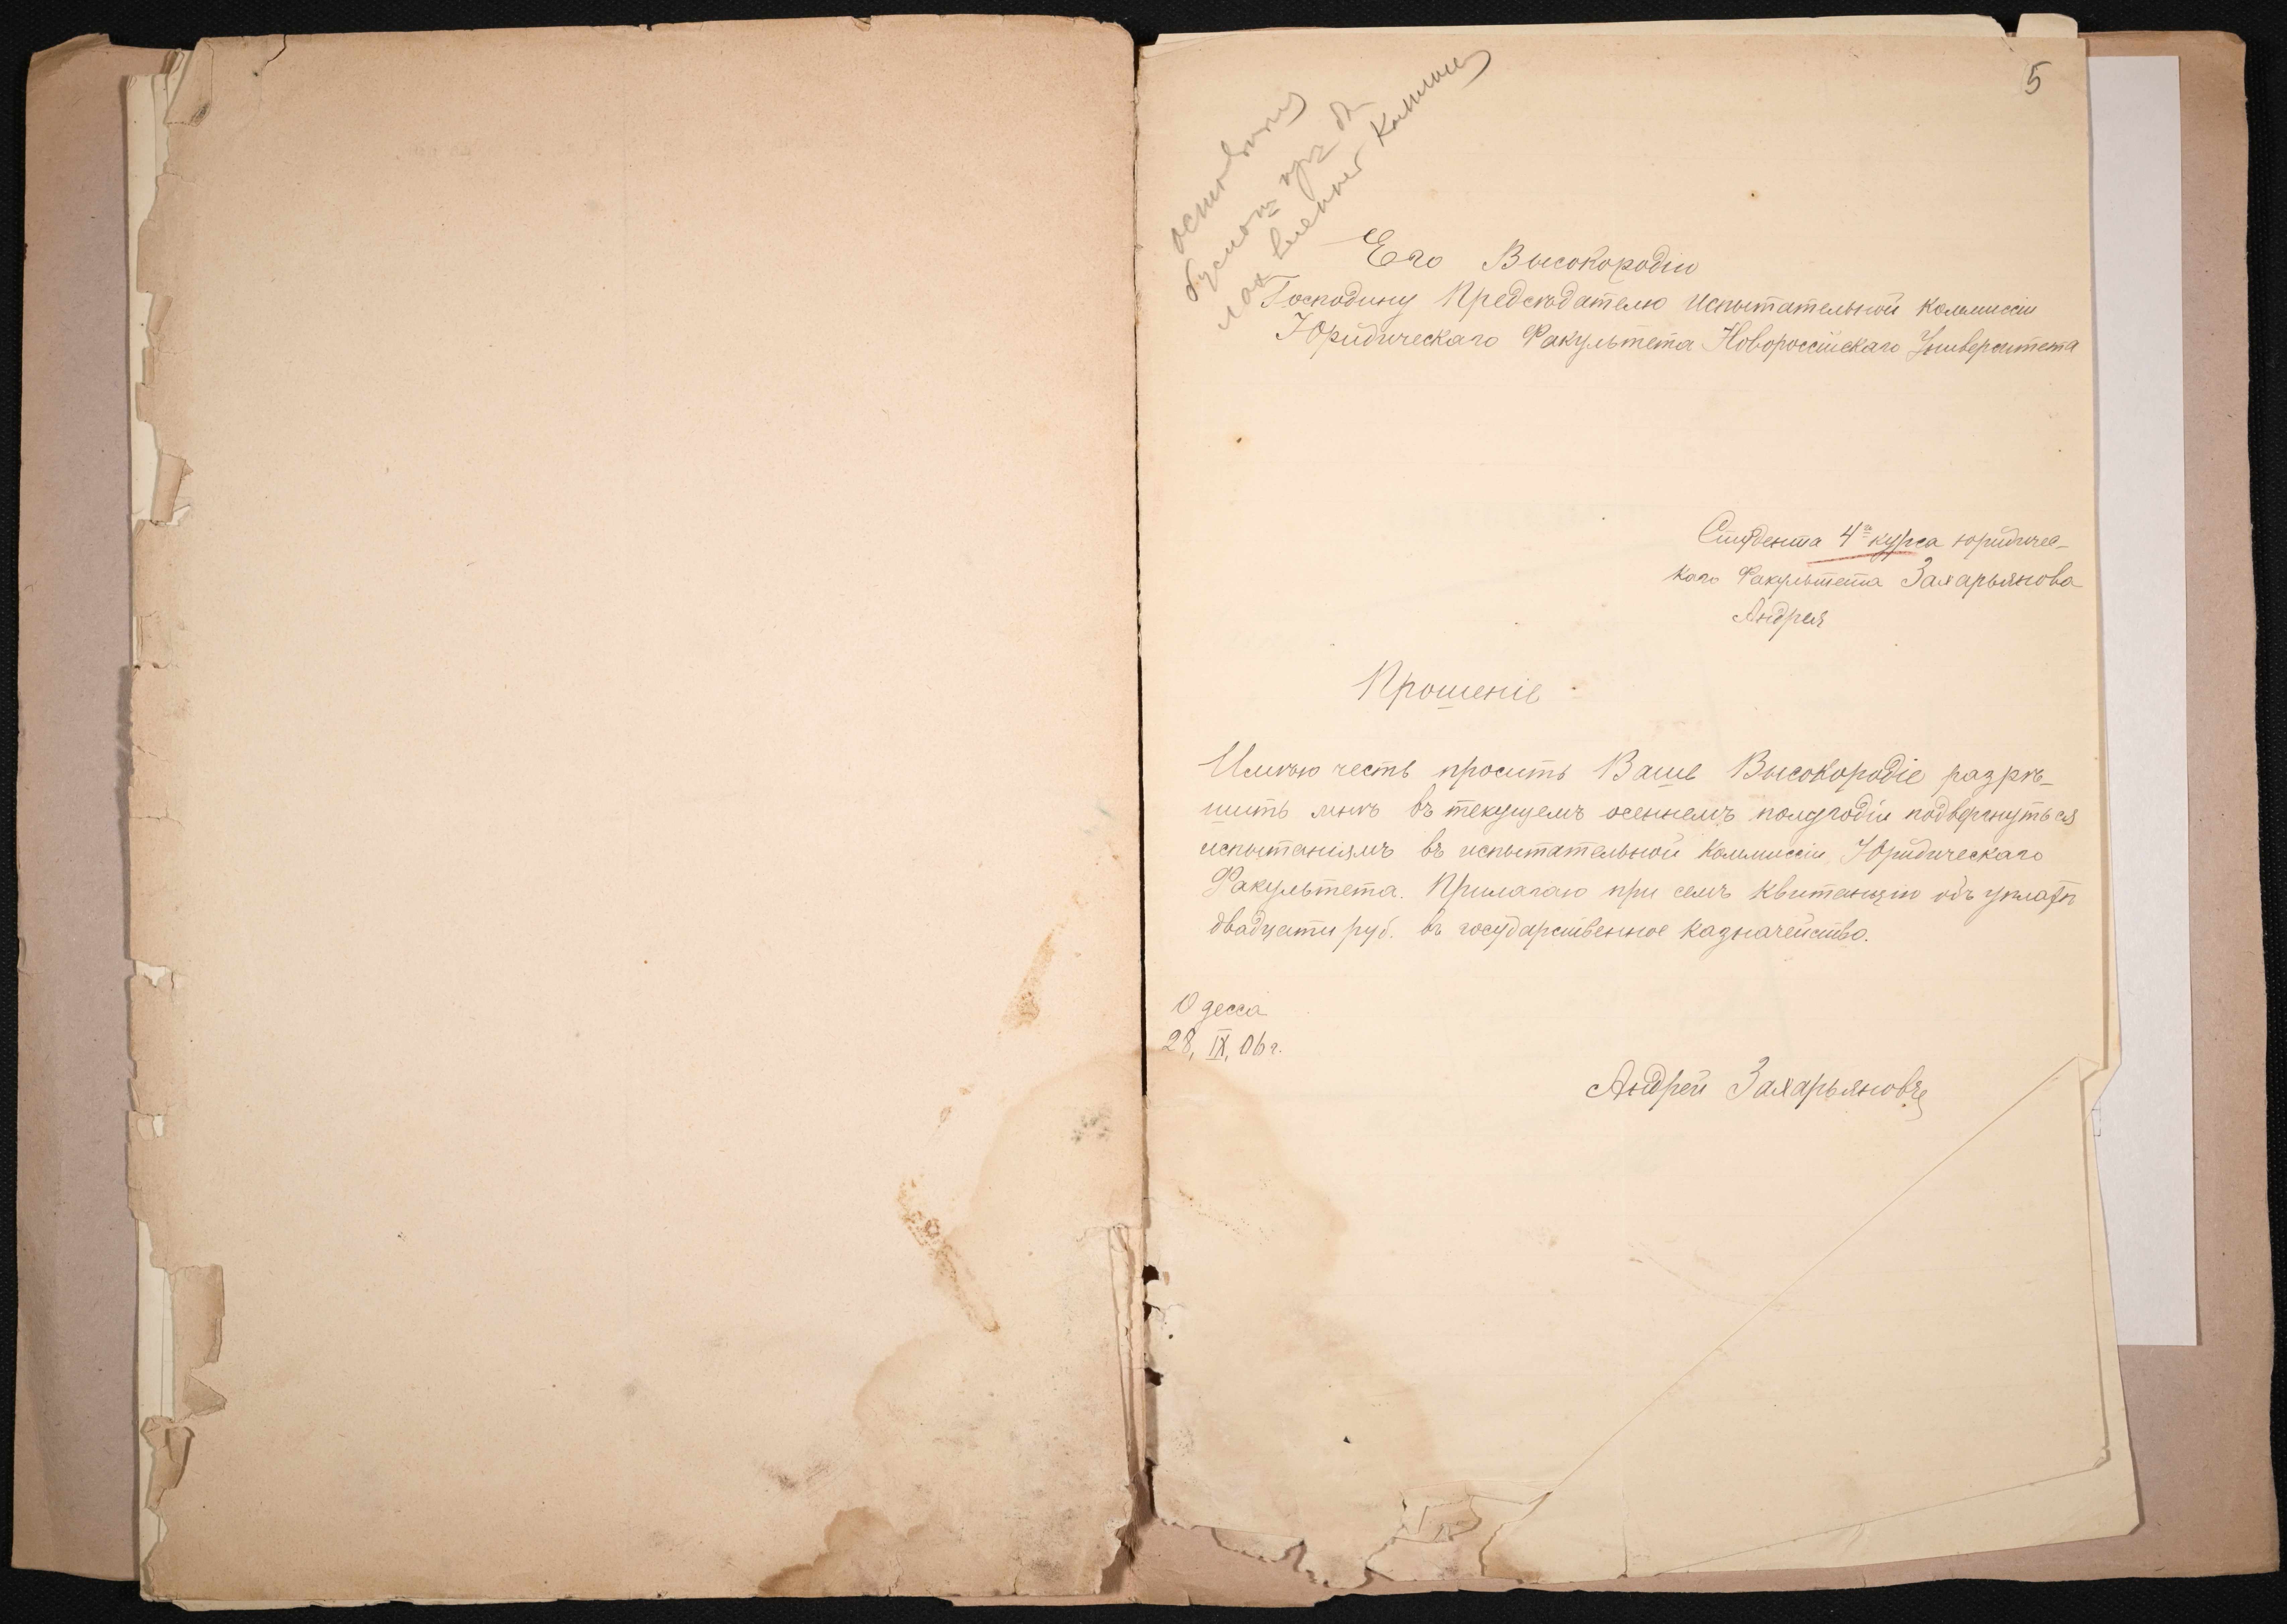 5
Его Высокородію
Господину Предсѣдателю Испытательной Коммиссіи
Юридическаго Факультета Новороссійскаго Университета
Студента 4го курса юридичес-
каго Факультета Захарьянова
Андрея
Прошеніе
Имѣю честь просить Ваше Высокородіе разрѣ-
шить мнѣ въ текущемъ осеннемъ полугодіи подвергнуться
испытаніямъ въ испытательной Коммиссіи Юридическаго
Факультета. Прилагаю при семъ квитанцію объ уплатѣ
двадцати руб. въ государственное казначейство.
Одесса
28, IX, 06 г.
Андрей Захарьяновъ